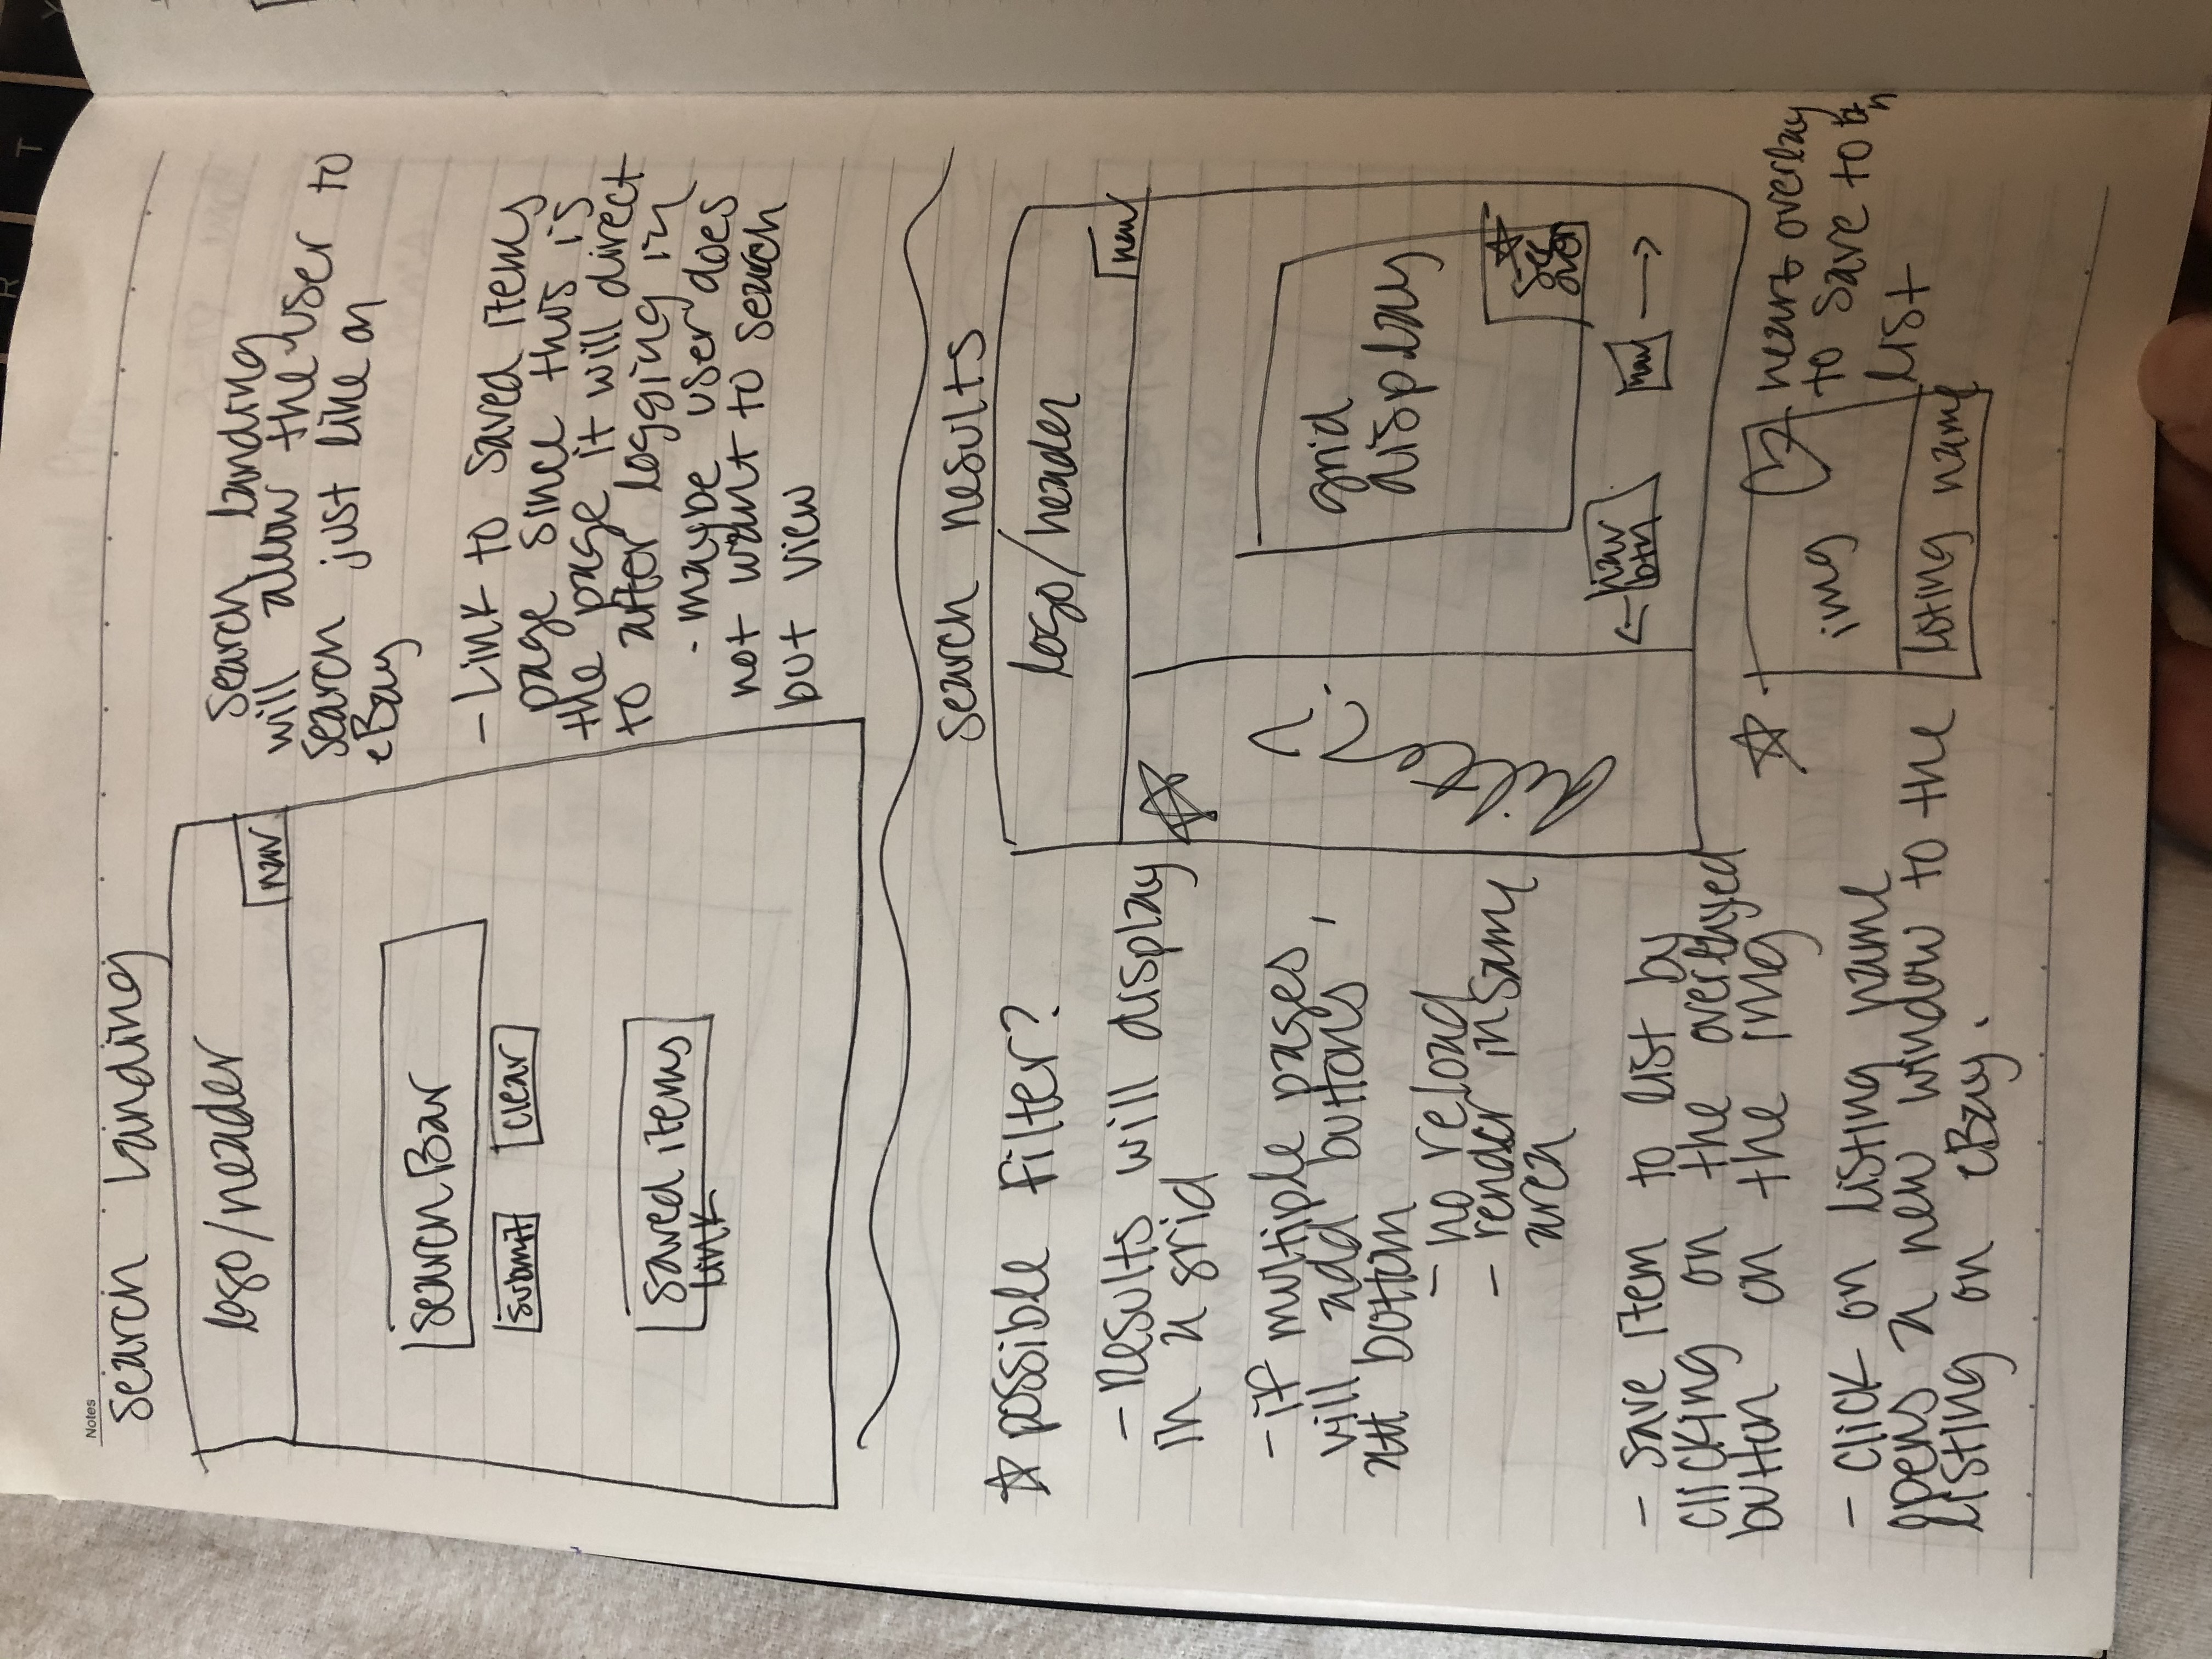 Notes
Search Landing
logo/header
nav
Search Bar
submit
clear
saved items
link
Search landing
will allow the user to
search just like on
eBay
- Link to saved items
page since this is
the page it will direct
to after logging in
- maybe user does
not want to search
but view
Search Results
☆ possible Filter?
- Results will display
in a grid
- if multiple pages,
will add buttons
at bottom
- no reload
- render in same
area
- save item to list by
clicking on the overlayed
button on the img
- click on listing name
opens a new window to the
listing on eBay.
logo/header
nav
☆
filter?
grid
display
☆
see
over
← nav
btn
nav →
☆
img
listing name
heart overlay
to save to
list
R
T
Y